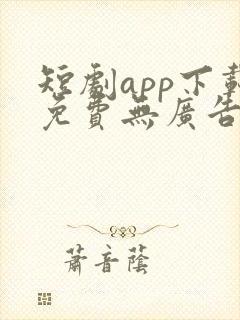 短劇app下載
免費無廣告
蕭音蔭